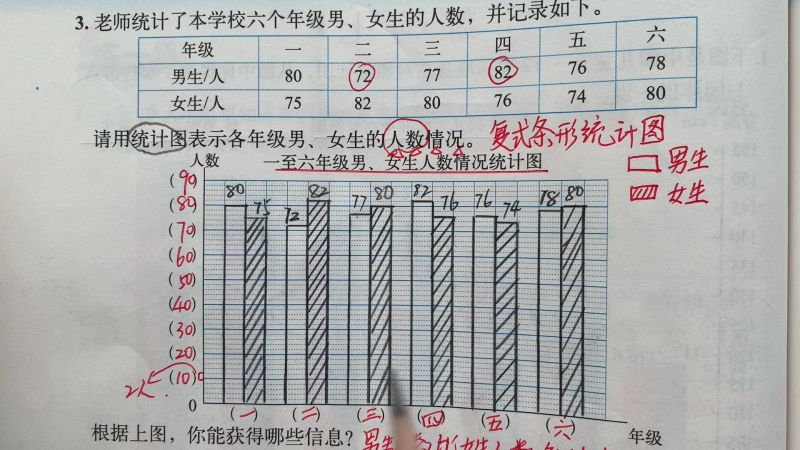 3. 老师统计了本学校六个年级男、女生的人数，并记录如下。
年级 一 二 三 四 五 六
男生/人 80 72 77 82 76 78
女生/人 75 82 80 76 74 80
请用统计图表示各年级男、女生的人数情况。 复式条形统计图
人数 一至六年级男、女生人数情况统计图
男生
女生
(90)
(80)
(70)
(60)
(50)
(40)
(30)
(20)
(10)
0
2人
80 75 72 82 77 80 82 76 76 74 78 80
(一) (二) (三) (四) (五) (六)
年级
根据上图，你能获得哪些信息？ 男生